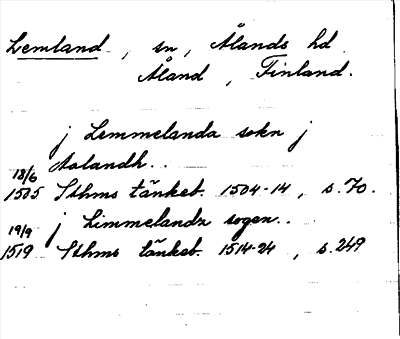 Lemland, sn, Ålands hd
Åland, Finland.
j Lemmelanda sokn j
Aalandh..
18/6
1505 Sthms tänkeb. 1504-14, s. 70.
j Limmelandz sogen..
19/9
1519 Sthms tänkeb. 1514-24, s. 249